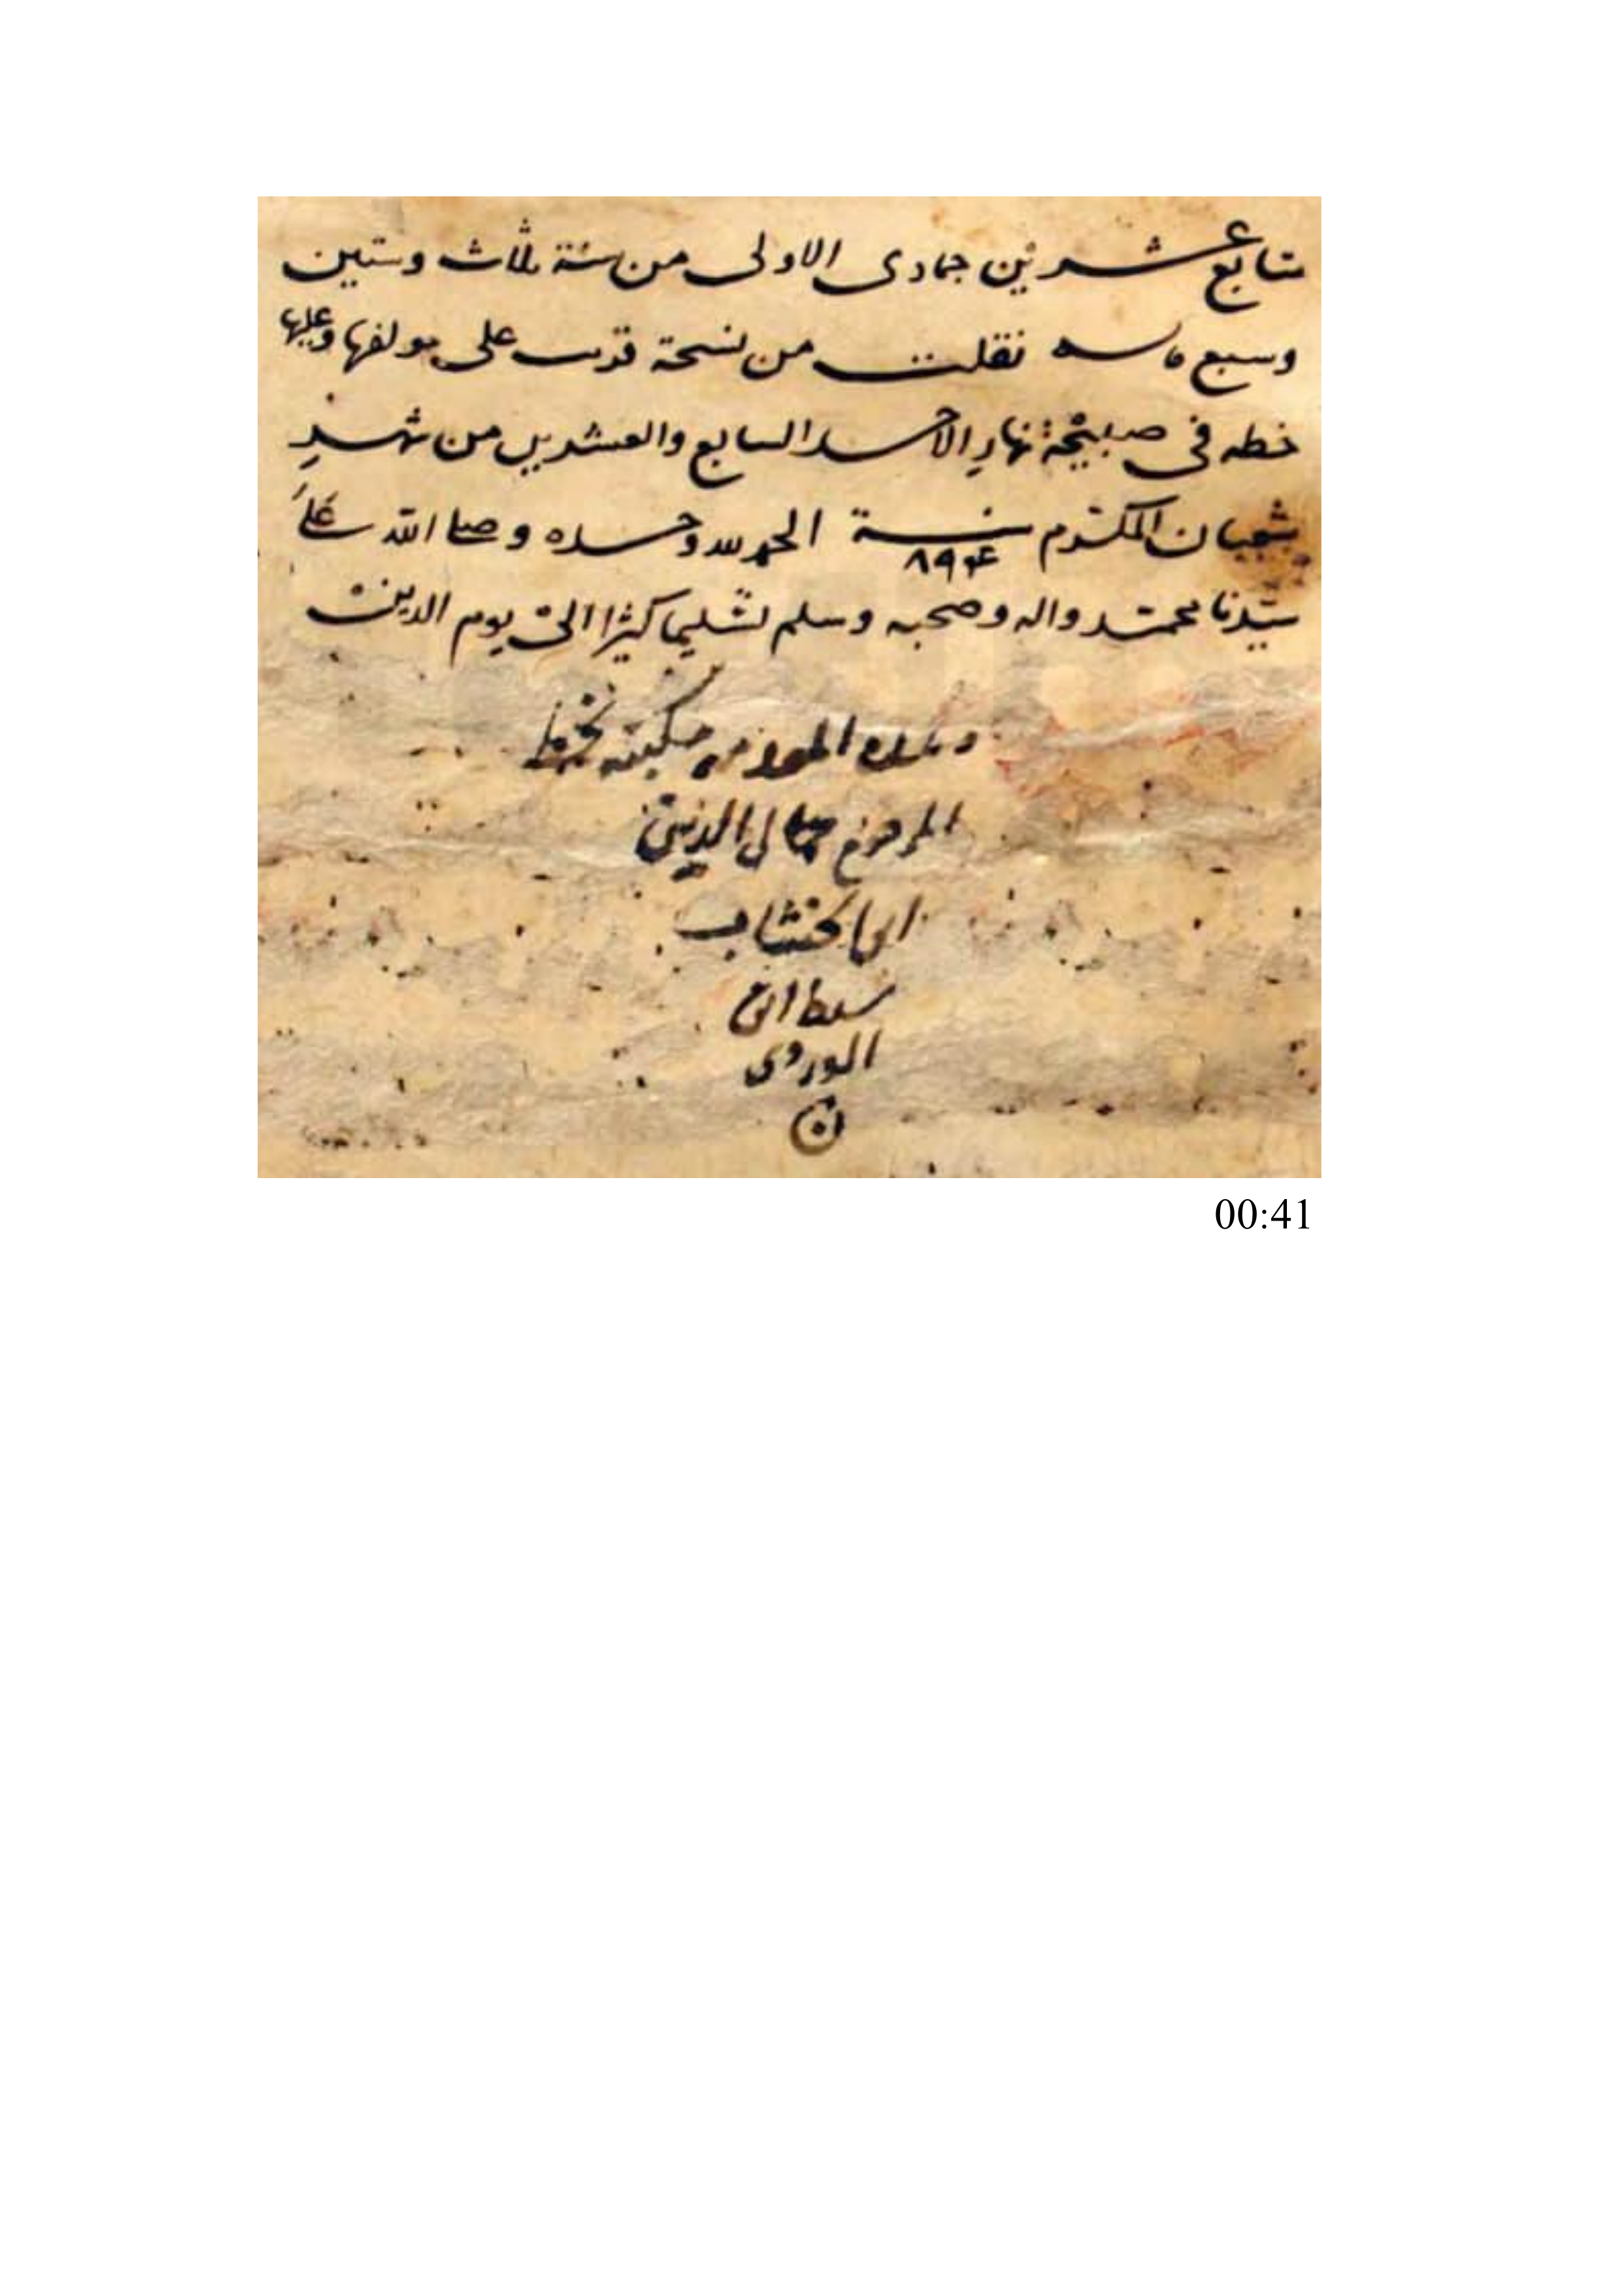 سابع عشرين جمادى الاولى من سنة ثلاث وستين
وسبع مائه نقلت من نسخة قرئت على مولفها وعليها
خطه فى صبيحة نهار الاحد السابع والعشرين من شهر
شعبان المكرم سنة ٨٩٤ الحمد لله وحده وصلى الله على
سيدنا محمد واله وصحبه وسلم تسليما كثيرا الى يوم الدين
بخط
المرحوم جمال الدين
ابن الخشاب
سبط ابن
الوردى
00:41